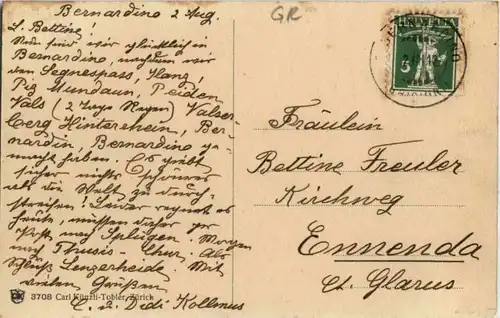 Bernardino 2 Aug.
GR
L. Bettine!
Nun sind wir glücklich in
Bernardino, nachdem wir
den Segnespass, Ilanz,
Piz Mundaun, Peiden,
Vals (2 Tage Regen) Valser-
berg Hinterrhein, Ber-
nardin, Bernardino ge-
macht haben. Es giebt
sicher nichts schöneres
als die Welt zu durch-
streifen! Leider regnet es
heute, müssen daher per
Post nach Splügen. Morgen
nach Thusis - Chur. Als
Schluss Lenzerheide. Mit
vielen Grüssen
C. & Dedi Kollmus
Fräulein
Bettine Freuler
Kirchweg
Ennenda
Ct. Glarus
5
3708 Carl Künzli-Tobler, Zürich